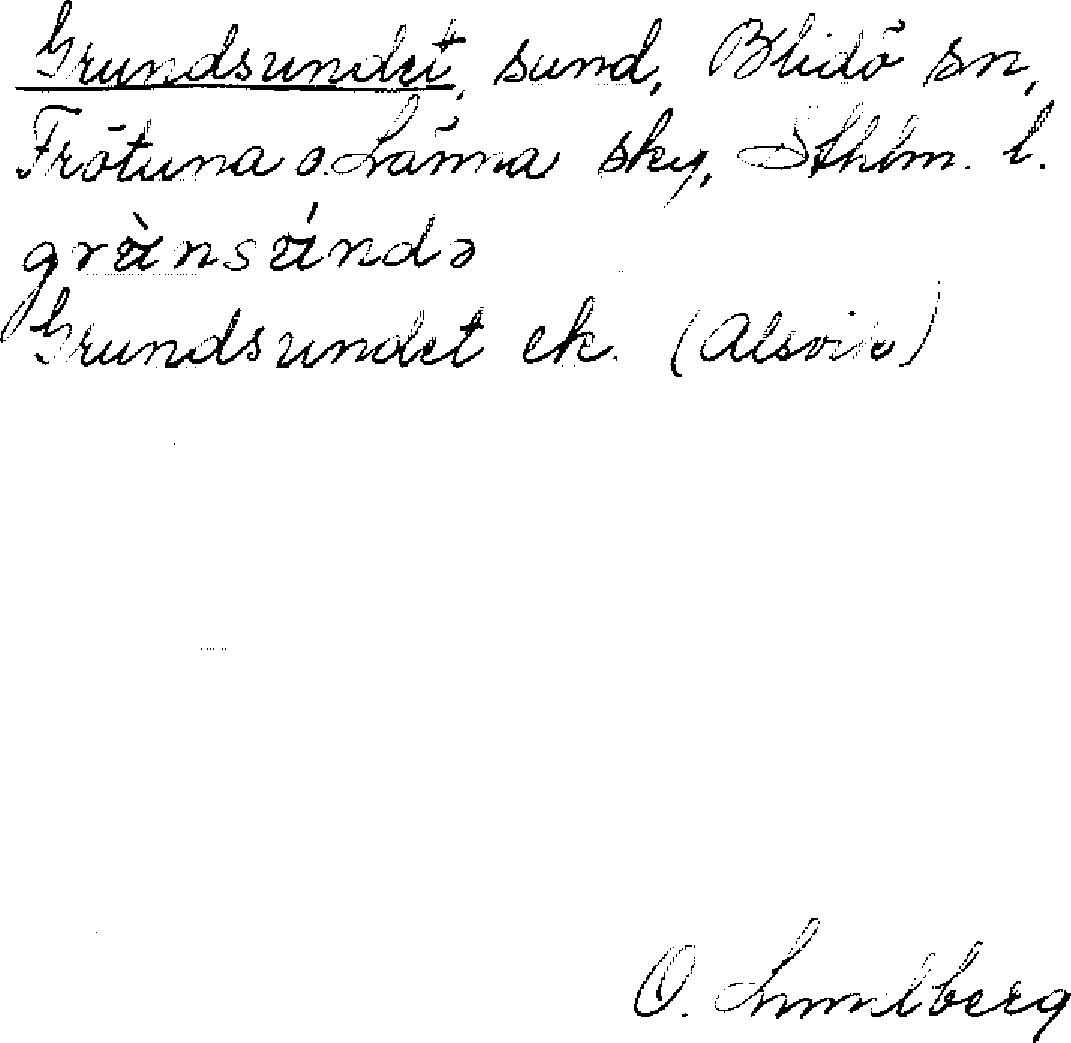 Grundsundet, sund, Blidö sn,
Frötuna o. Länna skg, Sthlm. l.
grànsúndə
Grundsundet ek. (Alsvik)
O. Lundberg